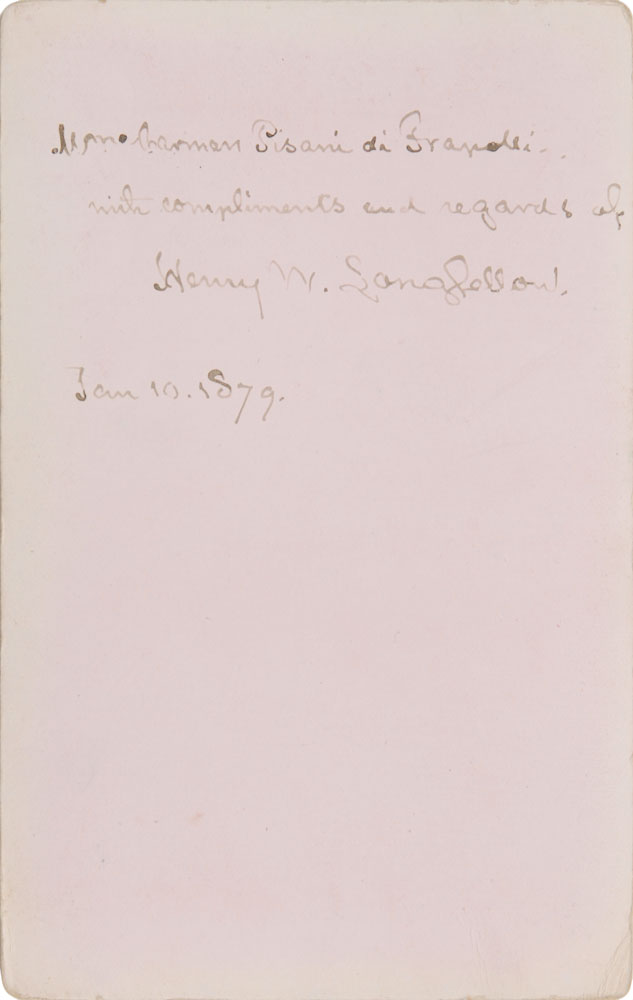 Mme Carmen Pisani di
with compliments and regards of
Henry W. Longfellow.
Jan 10. 1879.